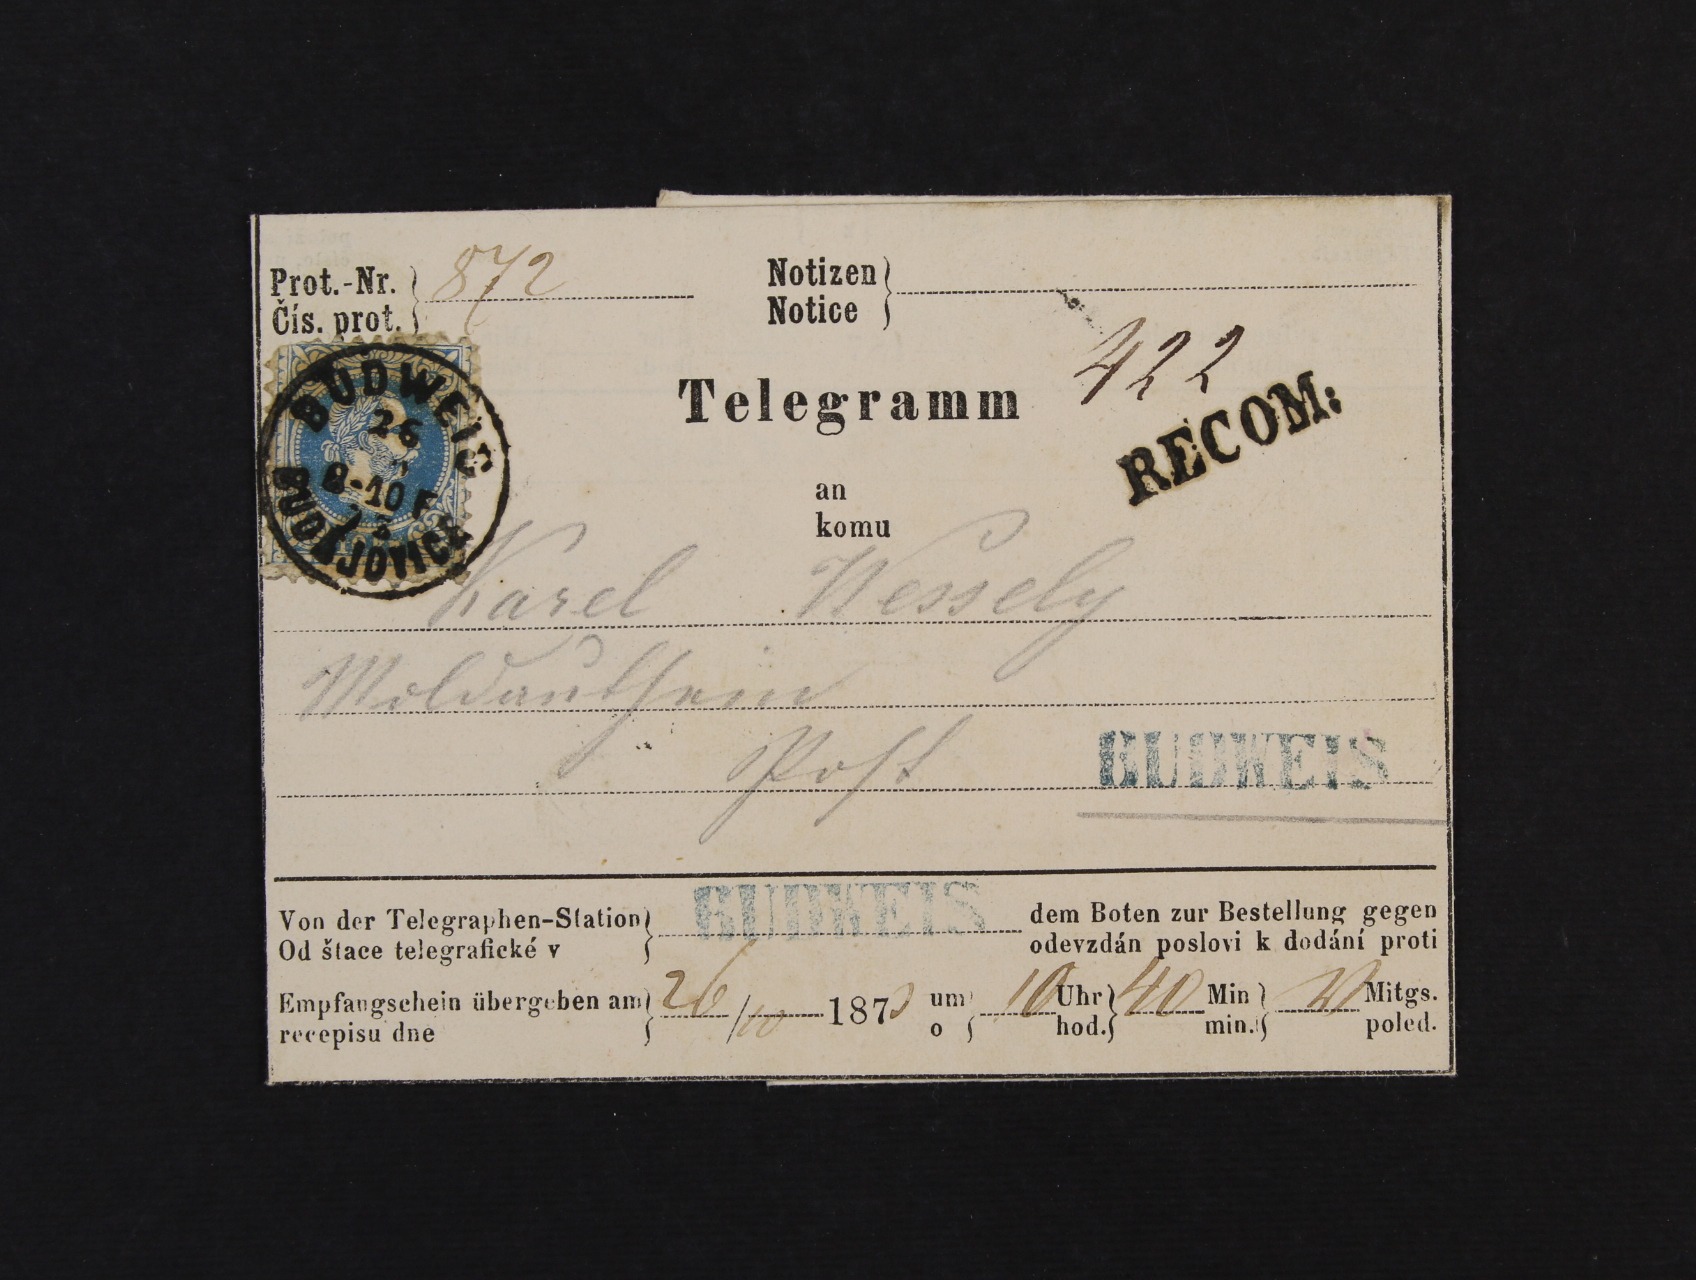 Prot.-Nr. 872
Čís. prot.
Notizen
Notice
422
Telegramm
RECOM:
BUDWEIS
26
8-10 F
BUDĚJOVICE
an
komu
Karel Wessely
Moldauthein
Post
BUDWEIS
Von der Telegraphen-Station BUDWEIS dem Boten zur Bestellung gegen
Od štace telegrafické v odevzdán poslovi k dodání proti
Empfangschein übergeben am 26/10 187 um 10 Uhr 40 Min Mitgs.
recepisu dne o hod. min. poled.